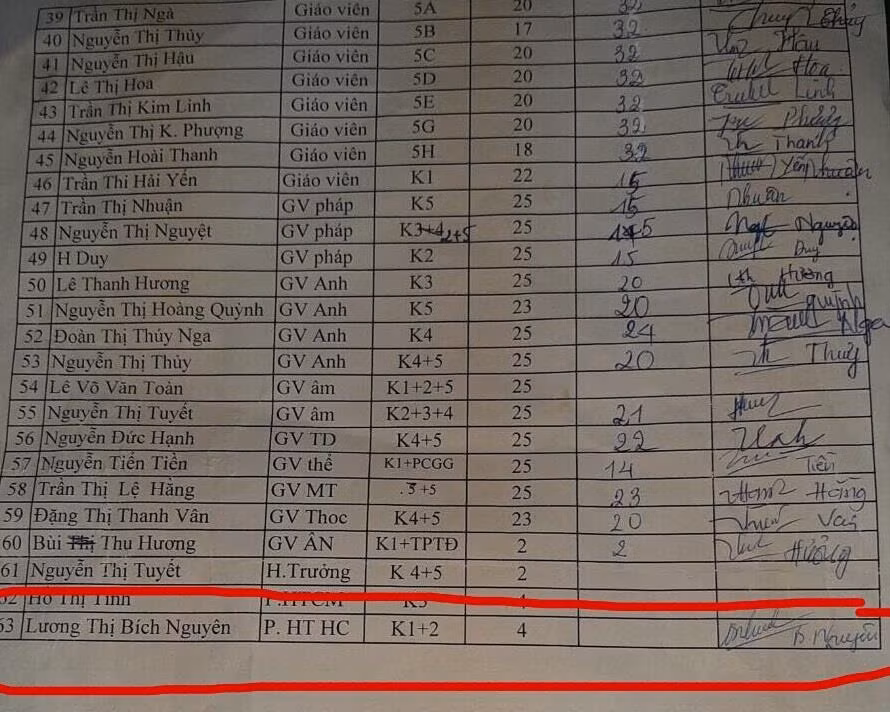 39 Trần Thị Ngà Giáo viên 5A 20 32
40 Nguyễn Thị Thủy Giáo viên 5B 17 32 Thủy
41 Nguyễn Thị Hậu Giáo viên 5C 20 32 Hậu
42 Lê Thị Hoa Giáo viên 5D 20 32 Hoa
43 Trần Thị Kim Linh Giáo viên 5E 20 32 Linh
44 Nguyễn Thị K. Phượng Giáo viên 5G 20 32 Phượng
45 Nguyễn Hoài Thanh Giáo viên 5H 18 32 Thanh
46 Trần Thi Hải Yến Giáo viên K1 22 15 Yến
47 Trần Thị Nhuận GV pháp K5 25 15 Nhuận
48 Nguyễn Thị Nguyệt GV pháp K3+4 2+5 25 Nguyệt
49 H Duy GV pháp K2 25 15 Duy
50 Lê Thanh Hương GV Anh K3 25 20 Hương
51 Nguyễn Thị Hoàng Quỳnh GV Anh K5 23 20 Quỳnh
52 Đoàn Thị Thúy Nga GV Anh K4 25 24 Nga
53 Nguyễn Thị Thủy GV Anh K4+5 25 20 Thủy
54 Lê Võ Văn Toàn GV âm K1+2+5 25
55 Nguyễn Thị Tuyết GV âm K2+3+4 25 21
56 Nguyễn Đức Hạnh GV TD K4+5 25 22
57 Nguyễn Tiến Tiền GV thể K1+PCGG 25 14 Tiền
58 Trần Thị Lệ Hằng GV MT .3 +5 25 23 Hằng
59 Đặng Thị Thanh Vân GV Thoc K4+5 23 20 Vân
60 Bùi Thị Thu Hương GV ÂN K1+TPTĐ 2 2 Hương
61 Nguyễn Thị Tuyết H.Trưởng K 4+5 2
62 Hồ Thị Tình P.HTCM K3 4
63 Lương Thị Bích Nguyên P. HT HC K1+2 4 B. Nguyên